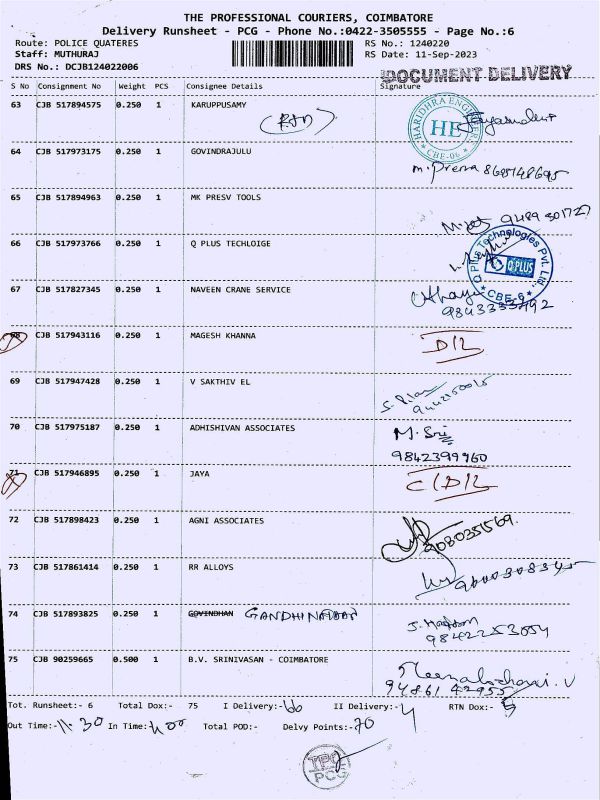 THE PROFESSIONAL COURIERS, COIMBATORE
Delivery Runsheet - PCG - Phone No.:0422-3505555 - Page No.:6
Route: POLICE QUATERES RS No.: 1240220
Staff: MUTHURAJ RS Date: 11-Sep-2023
DRS No.: DCJB124022006
DOCUMENT DELIVERY
S No Consignment No Weight PCS Consignee Details Signature
63 CJB 517894575 0.250 1 KARUPPUSAMY
HARIDHRA ENGINEERS HE CBE-06
64 CJB 517973175 0.250 1 GOVINDRAJULU
m. Prema 8695148695
65 CJB 517894963 0.250 1 MK PRESV TOOLS
9489301727
66 CJB 517973766 0.250 1 Q PLUS TECHLOIGE
Q Plus Technologies Pvt. Ltd. Q PLUS CBE-6
67 CJB 517827345 0.250 1 NAVEEN CRANE SERVICE
9843333492
68 CJB 517943116 0.250 1 MAGESH KHANNA
D/L
69 CJB 517947428 0.250 1 V SAKTHIV EL
70 CJB 517975187 0.250 1 ADHISHIVAN ASSOCIATES M. Sri
9842399960
71 CJB 517946895 0.250 1 JAYA
C/D/L
72 CJB 517898423 0.250 1 AGNI ASSOCIATES
9080351569.
73 CJB 517861414 0.250 1 RR ALLOYS
9600308345
74 CJB 517893825 0.250 1 GOVINDHAN
9842253054
75 CJB 90259665 0.500 1 B.V. SRINIVASAN - COIMBATORE
Meenalochani. V
94861 42955
Tot. Runsheet:- 6 Total Dox:- 75 I Delivery:- 66 II Delivery:- 4 RTN Dox:- 5
Out Time:- 11.30 In Time:- 4.00 Total POD:- Delvy Points:- 70
TPC
PCG